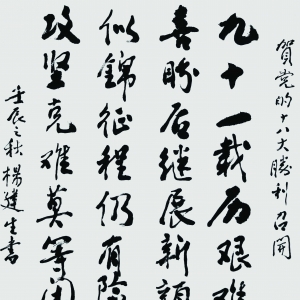 贺党的十八大勝利召開
九十一载历艰难
喜盼后继展新颜
似錦征程仍有險
攻坚克难莫等闲
壬辰之秋楊建生書